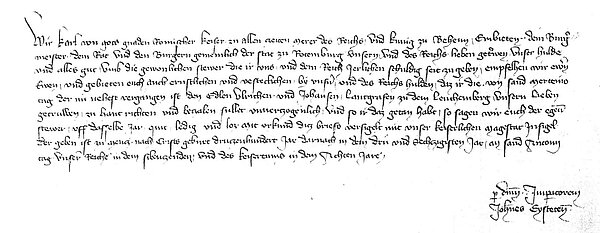 Wir Karl von gots gnaden Romischer keiser zu allen zeiten merer des Reichs und kunig zu Beheim, Embieten dem Burg
meister dem Rat und den Burgern gemeinlich der stat zu Rotemburg unsern und des Reichs lieben getrewen unser hulde
und alles gut, Umb die gewonlichen stewer die ir uns und dem Reich Jerlichen schuldig seit zugeben, empfelhen wir ewrn
Ewen, und gebieten euch auch ernstlichen und vesteclichen by unsern und des Reichs hulden, daz ir die von sand mertins
tag der nu nehest vergangen ist den Edlen Ulrichen und Johansen Lantgrafen zu dem Leuchtemberg unsern lieben
getrewen, zu hant richten und bezalen sullet unverzogenlich, und so ir daz getan habt, so sagen wir euch der egen
stewer, uff dasselbe Jar quit ledig und los mit urkund diz briefs versigelt mit unser keiserlichen Magestat Insigel
der geben ist zu mentz nach Crists geburt druzenhundert Jar darnach in dem drei und Sechzigisten Jar, an sand
tag unser Reiche in dem sibenzenden, und des keisertums in dem Achten Jare.
p dnm Imperatorem
Johnes Eystetten